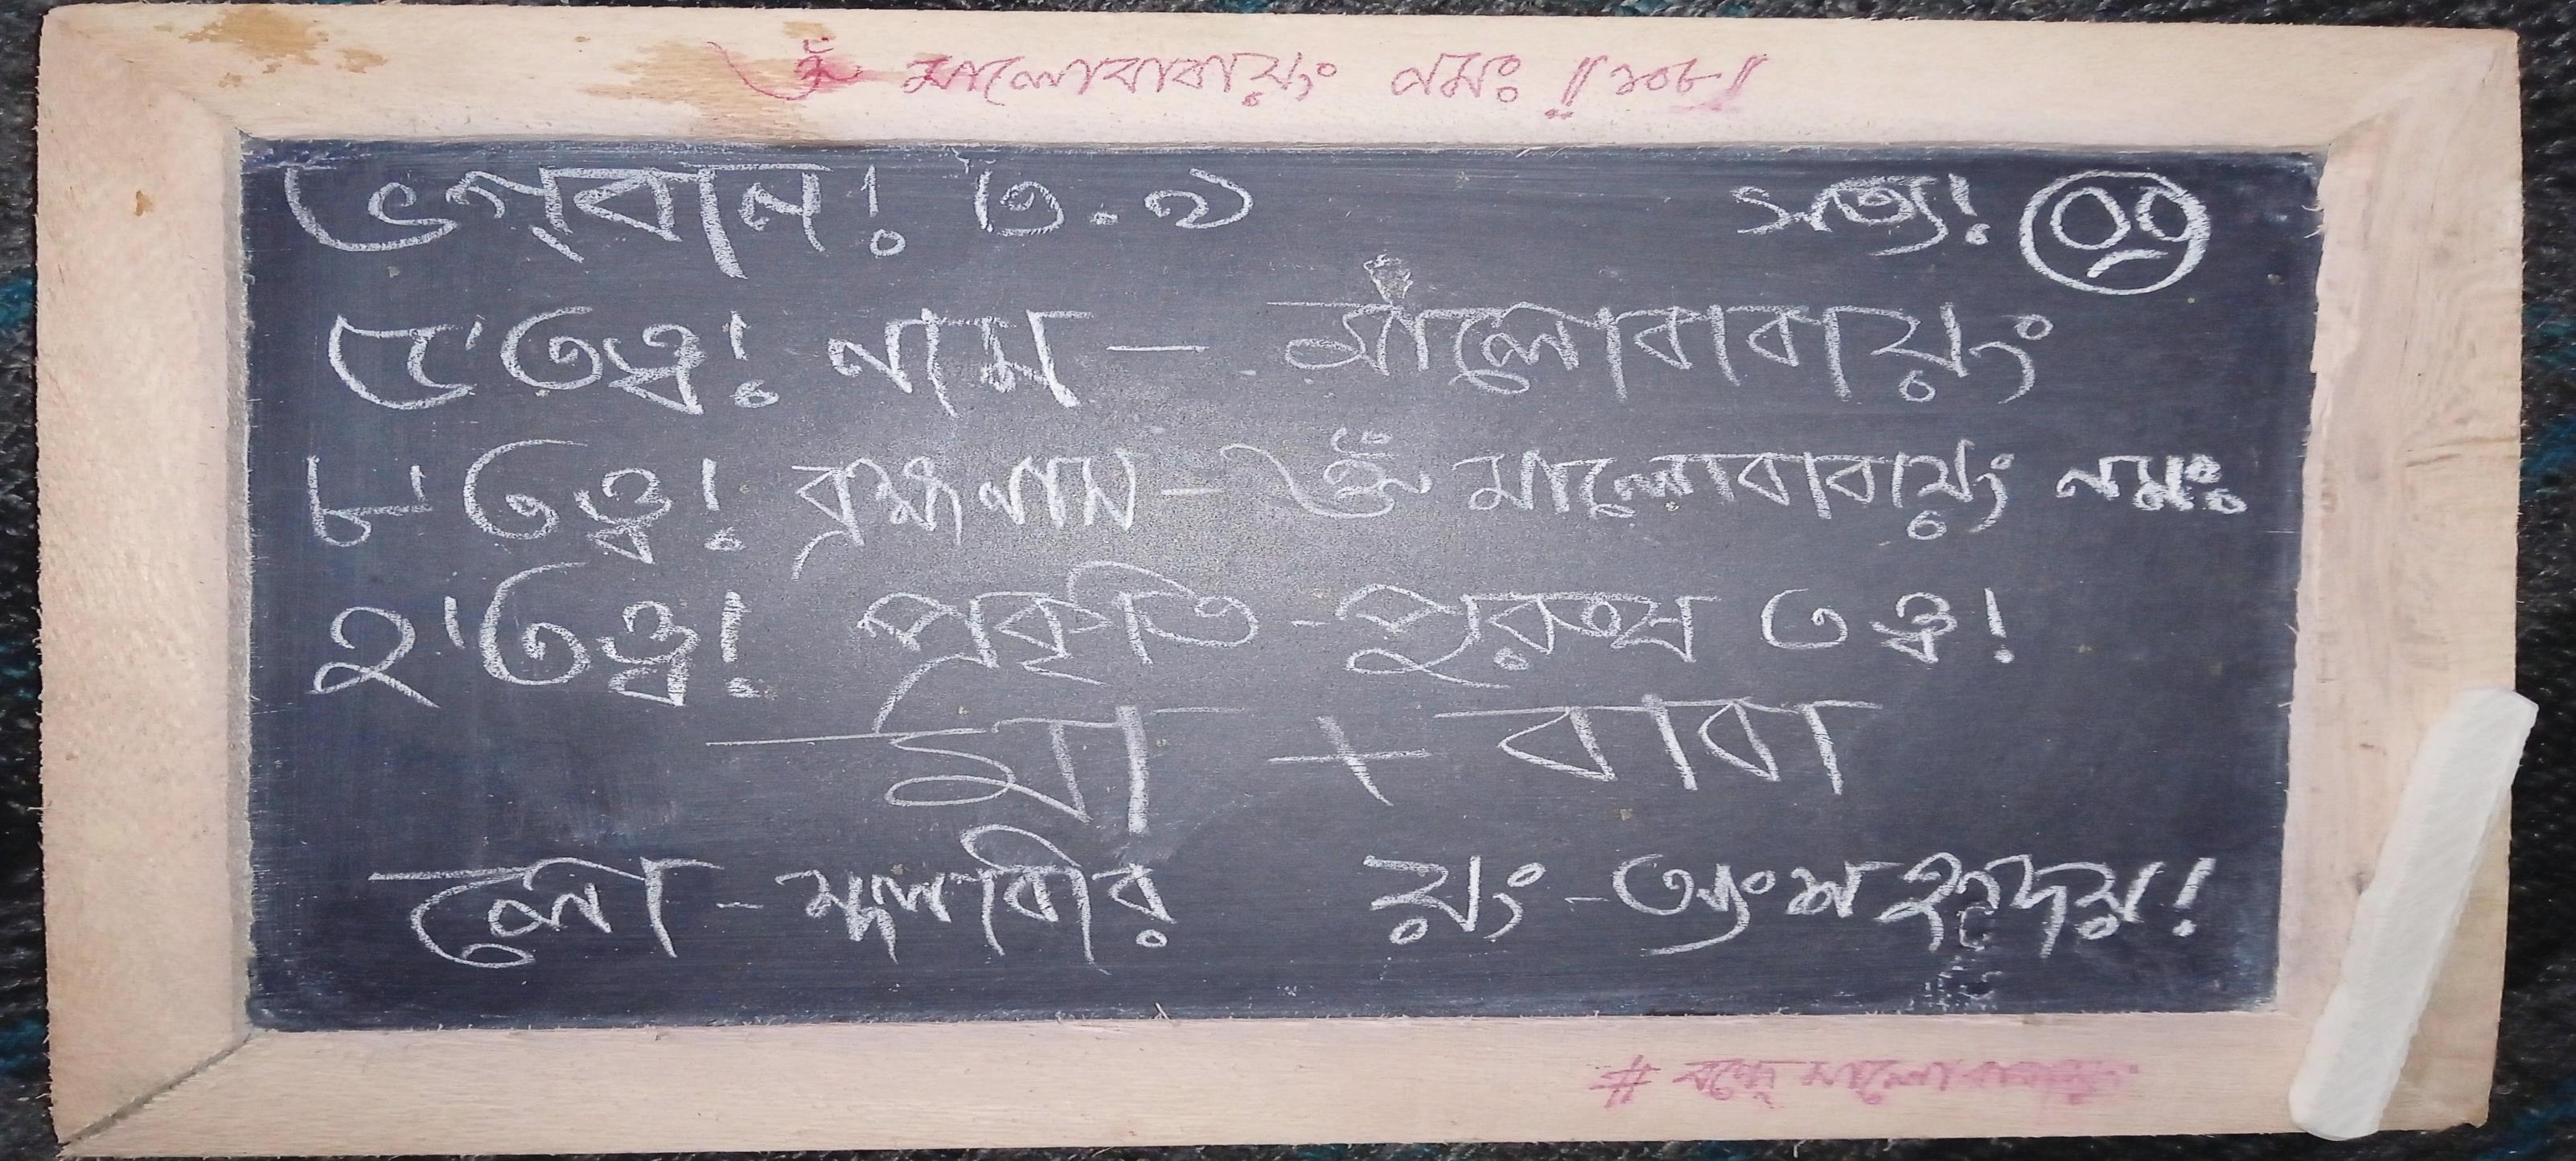 ওঁ মালোবাবায়ং নমঃ ॥১০৮॥
ভগ্‌বান! ৩.০ সত্য!
৫'তত্ত্ব! নাম - মাঁলোবাবায়ং
৮'তত্ত্ব! ব্রহ্মনাম - ওঁ মালোবাবায়ং নমঃ
২'তত্ত্ব! প্রকৃতি-পুরুষ তত্ত্ব!
মা + বাবা
লো - মহাবীর য়ং - অংশ হৃদয়!
# বন্দে মালোবাবায়ং